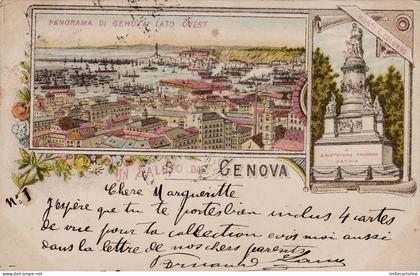 PANORAMA DI GENOVA LATO OVEST
A
CRISTOFORO COLOMBO
PATRIA
UN SALUTO DA GENOVA
No 1
Chere Margueritte
J'espère que tu te portes bien inclus 4 cartes
de vue pour ta collection écris moi aussi
dans la lettre de nos chers parents
Fernand